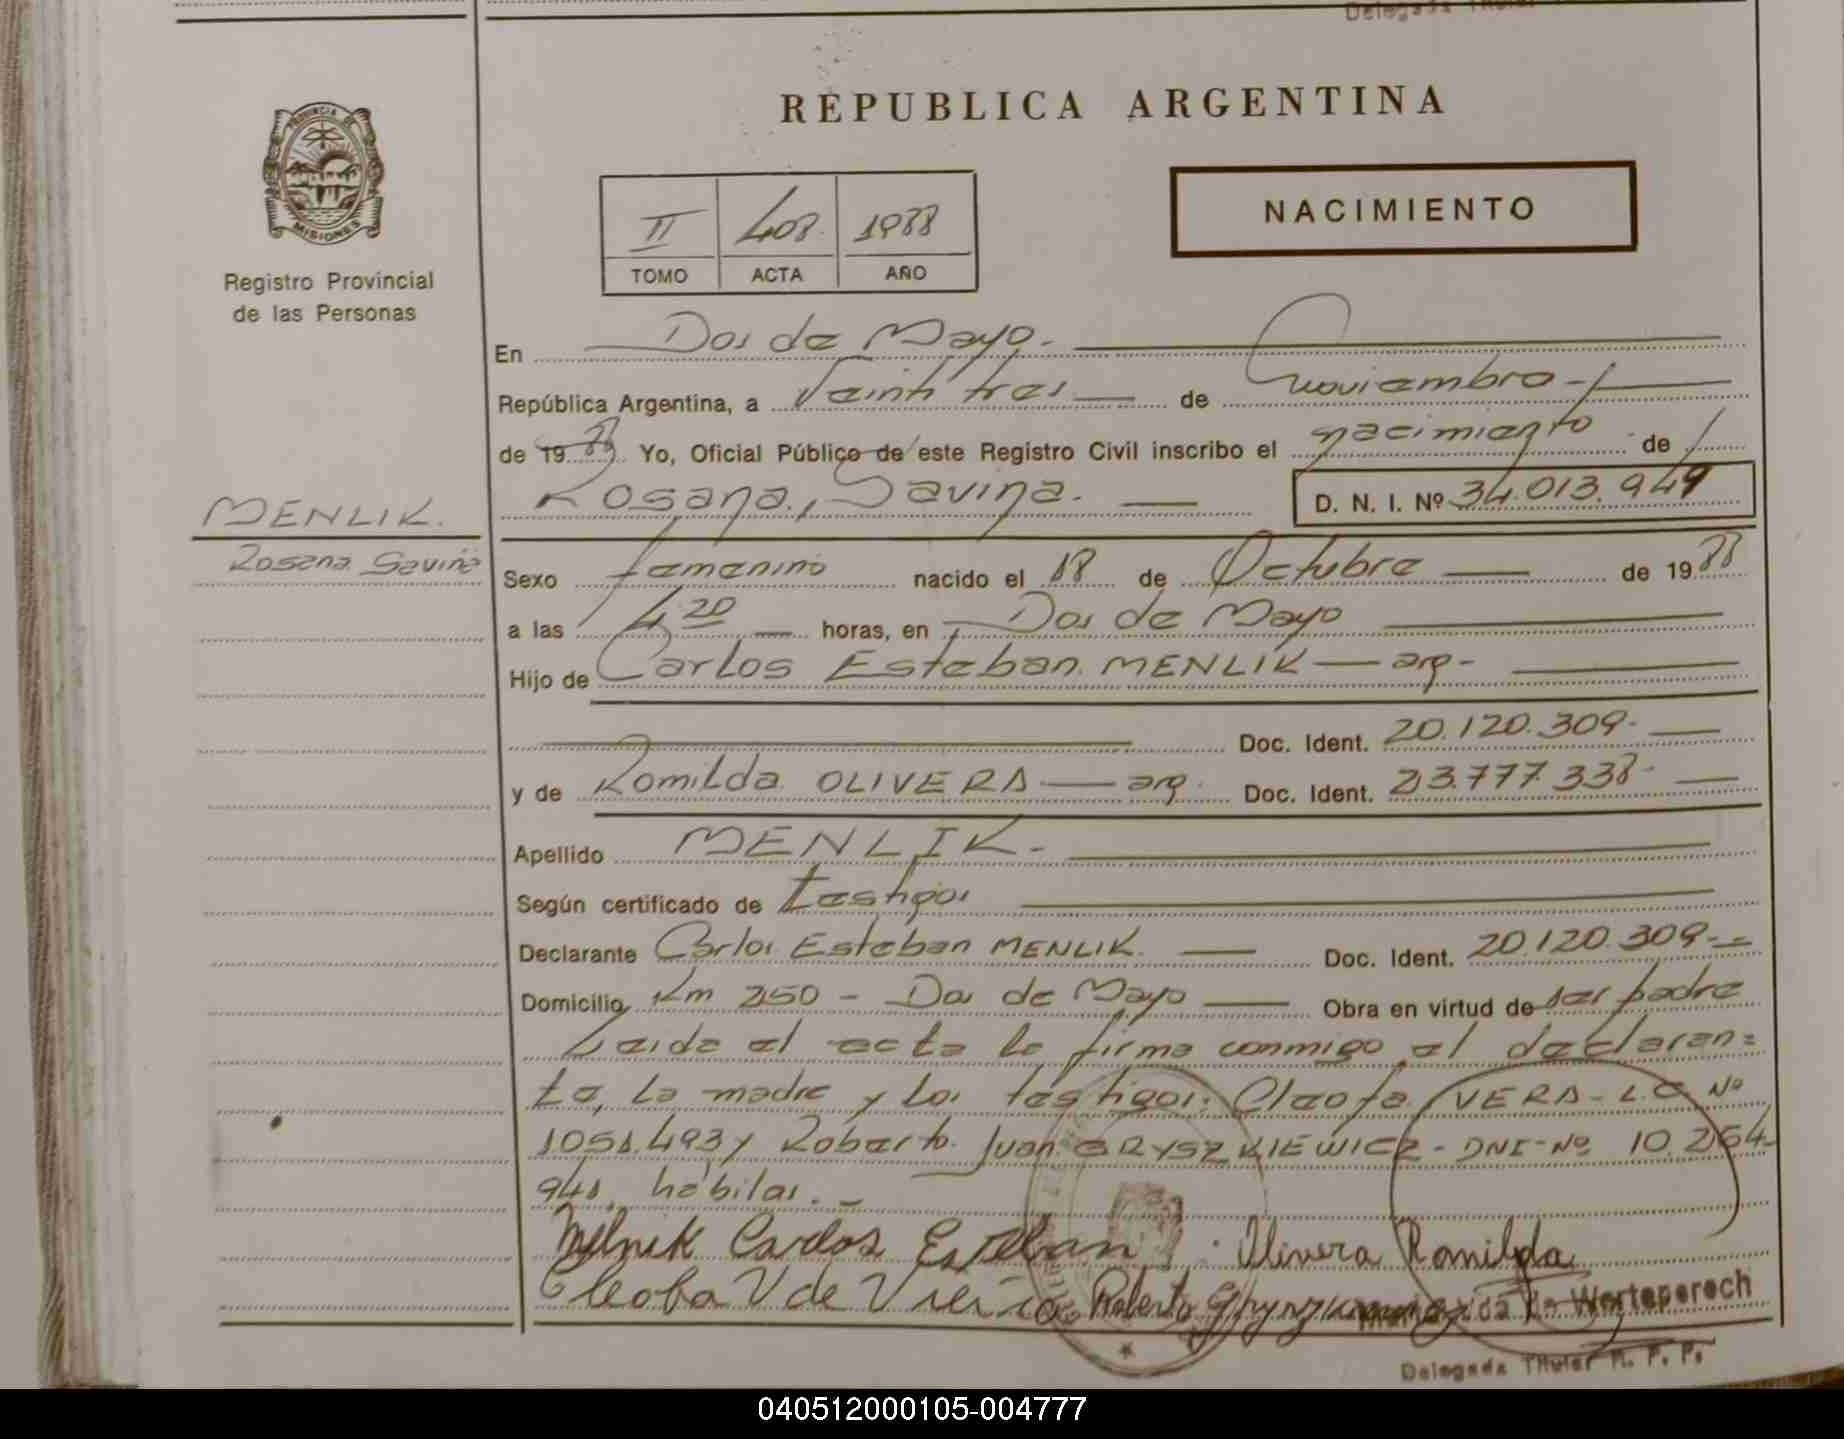 Delegada Titular
PROVINCIA DE
MISIONES
Registro Provincial
de las Personas
REPUBLICA ARGENTINA
II 408 1988
TOMO ACTA AÑO
NACIMIENTO
En Dos de Mayo.
República Argentina, a Veintitres de noviembre
de 1988. Yo, Oficial Público de este Registro Civil inscribo el nacimiento de
MENLIK.
Rosana Savina
Rosana, Savina.
D. N. I. Nº 34.013.949
Sexo femenino nacido el 18 de Octubre de 1988
a las 4 20 horas, en Dos de Mayo
Hijo de Carlos Esteban MENLIK — arg-
Doc. Ident. 20.120.309-
y de Romilda OLIVERA — arg. Doc. Ident. 23.777.338-
Apellido MENLIK.-
Según certificado de testigos
Declarante Carlos Esteban MENLIK. Doc. Ident. 20.120.309--
Domicilio Km 250 - Dos de Mayo Obra en virtud de ser padre
Leida el acta la firma conmigo el declaran=
te, la madre y los testigos: Cleofa VERA - L.C Nº
1051.493 y Roberto Juan GRYSZKIEWICZ - DNI-Nº 10.264-
941, habiles.-
Melnik Carlos Esteban Olivera Romilda
Cleofa V de Vieira Roberto
de Werteperech
Delegada Titular R. P. P.
040512000105-004777